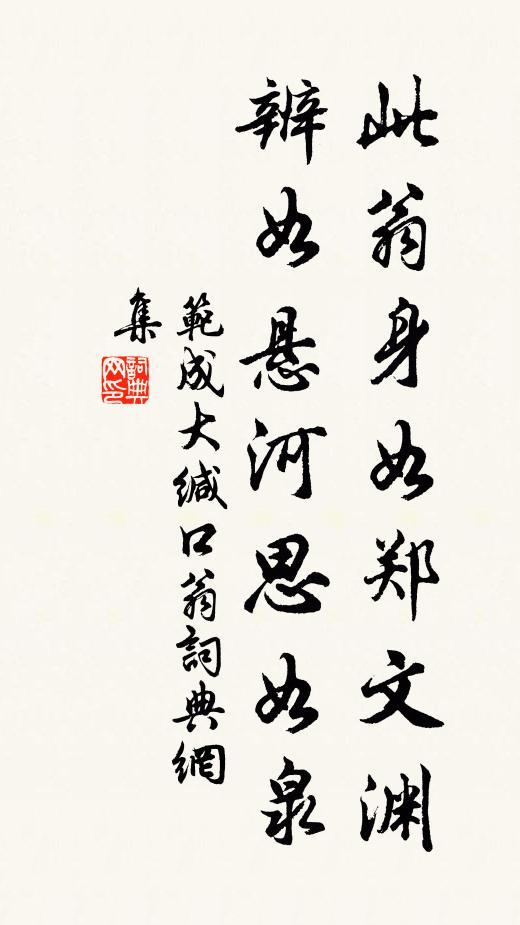 此翁身如郑文渊
辨如悬河思如泉
範成大缄口翁詞典網
集
詞典
网印